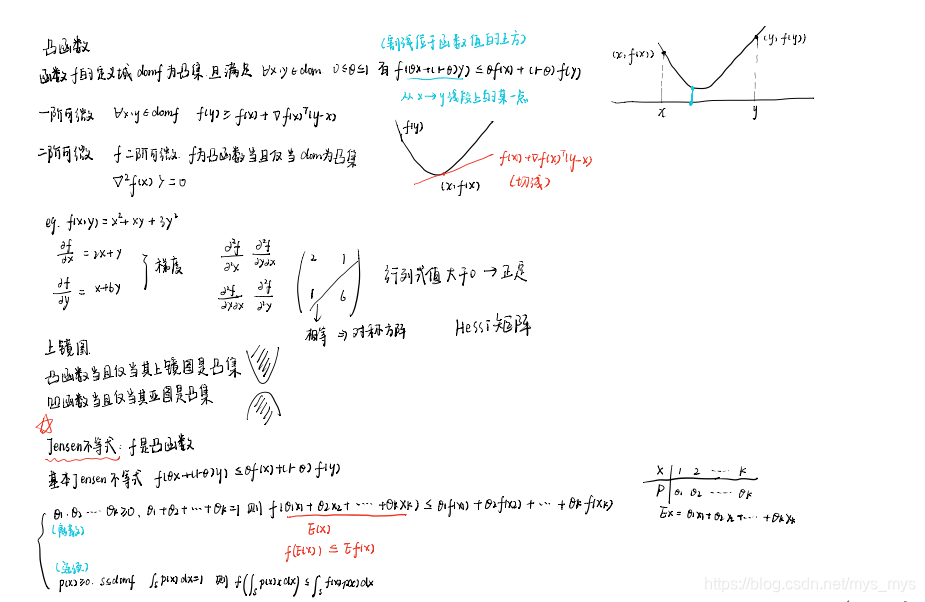 凸函数
(割线位于函数值的上方)
函数f的定义域domf为凸集 且满足 ∀x,y∈dom 0≤θ≤1 有 f(θx+(1-θ)y) ≤ θf(x) + (1-θ)f(y)
从x→y线段上的某一点
(x, f(x))
(y, f(y))
x
y
一阶可微 ∀x,y∈domf f(y) ≥ f(x) + ∇f(x)ᵀ(y-x)
二阶可微 f二阶可微. f为凸函数当且仅当dom为凸集
∇²f(x) ≽ 0
f(y)
f(x)+∇f(x)ᵀ(y-x)
(切线)
(x, f(x))
eg. f(x,y) = x² + xy + 3y²
∂f/∂x = 2x+y
∂f/∂y = x+6y
梯度
∂²f/∂²x ∂²f/∂y∂x
∂²f/∂y∂x ∂²f/∂²y
2 1
1 6
行列式值大于0 → 正定
相等 ⇒ 对称方阵
Hessi矩阵
上镜图
凸函数当且仅当其上镜图是凸集
凹函数当且仅当其亚图是凸集
Jensen不等式: f是凸函数
基本Jensen不等式 f(θx+(1-θ)y) ≤ θf(x)+(1-θ)f(y)
θ₁,θ₂ ⋯ θk≥0, θ₁+θ₂+⋯+θk=1 则 f(θ₁x₁+θ₂x₂+⋯+θkxk) ≤ θ₁f(x₁)+θ₂f(x₂)+⋯+θkf(xk)
(离散)
E(x)
f(E(x)) ≤ Ef(x)
(连续)
p(x)≥0. S⊆domf ∫ₛp(x)dx=1 则 f(∫ₛp(x)xdx) ≤ ∫ₛf(x)p(x)dx
X 1 2 ⋯ k
P θ₁ θ₂ ⋯ θk
EX = θ₁x₁+θ₂x₂+⋯+θkxk
https://blog.csdn.net/mys_mys